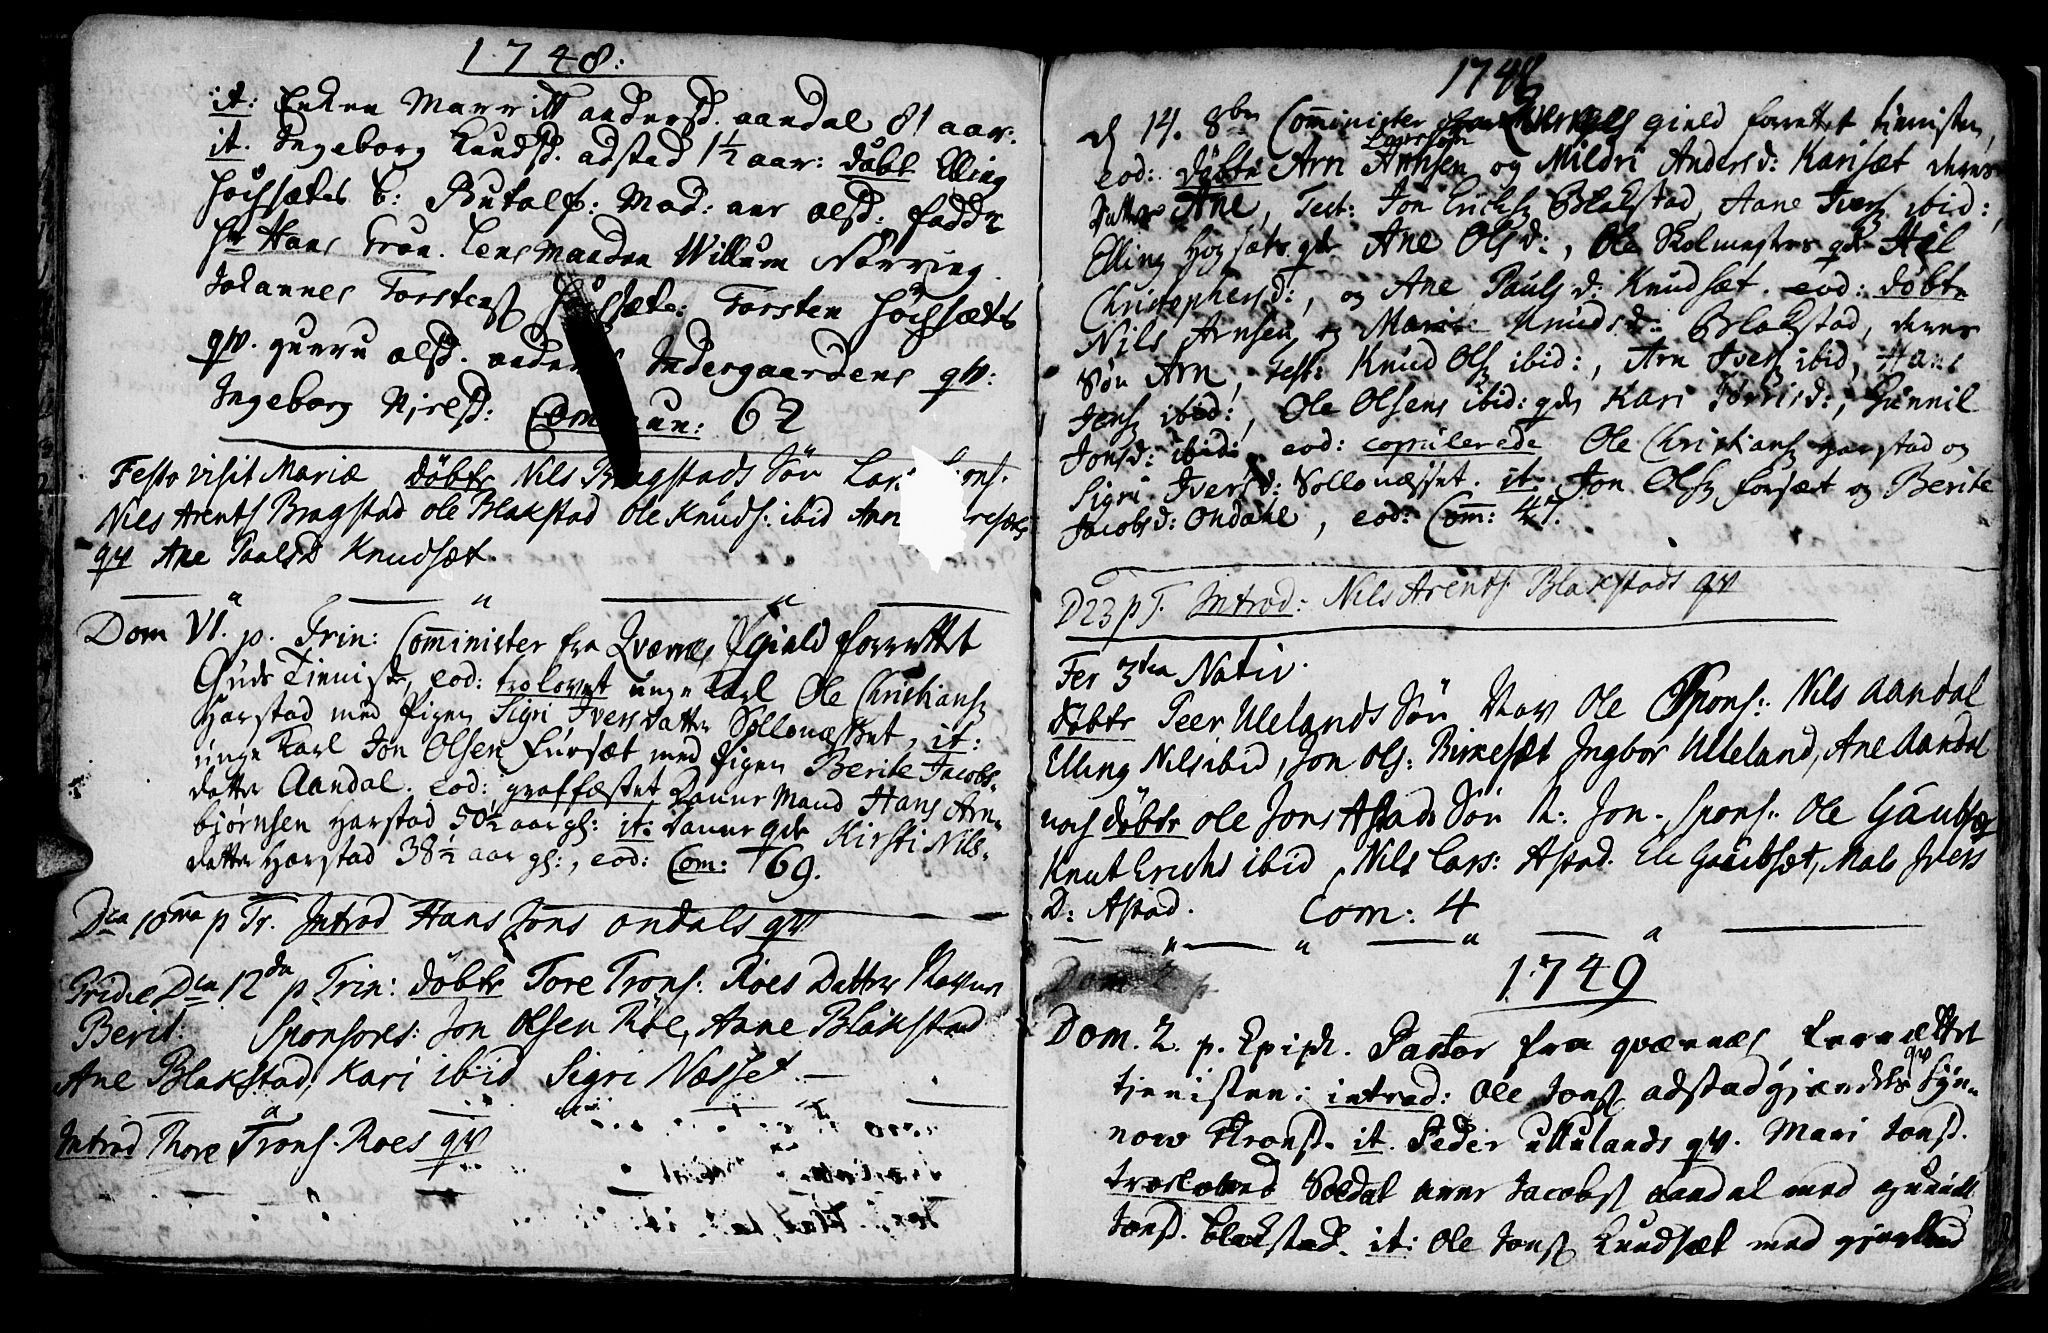 1748:
it: Enken Marritt andersd. aandal 81 aar.
it. Ingeborg Knudsd. adstad 1½ aar: döbt Elling
Höchsætes b: Mod: ane olsd: fadd:
Hr Hans Grøn. Lensmanden Willum Nørring.
Johannes Forstens Höchsæte: Torsten Höchsæts
qv. guru olsd. anders Indergaardens qv:
Ingeborg Nielsd: Commun: 62
Festo visit Mariæ döbte Nils Bragstads Sön Lars
Nils Arents Bragstad ole Blakstad Ole Knuds: ibid
qv Ane Paalsd Knudsæt.
Dom VI. p. Trin: Comminister fra Qværnes gield forrettet
Guds Tienist, eod: trolovet unge Karl Ole Christians
Harstad med Pigen Sigri Iversdatter Sollonæsset, it:
unge Karl Jon Olsen Fursæt med Pigen Berite Jacobs-
datter Aandal. eod: graffæstet Danne Mand Hans Arn-
bjørnsen Harstad 50½ aar gl: it: Danne qde Kirsti Nils-
datter Harstad 38½ aar gl:, eod: Com: 69.
Dca 10ma p Tr. Introd Hans Jons ondals qv
Pridie Dca 12da p Trin: döbte Tore Trons: Roes Datter Navnen
Berit: Sponsores: Jon Olsen Röe, Anne Blakstad
Ane Blakstad, Kari ibid Sigri Næsset.
Introd Thore Trons. Roes qv
1748
d 14. 8br Comminister gield forrettet tienisten,
Laursson
eod: döbte Arn Arnsen og Mildri Andersd: Karisæt deres
Datter Ane, Test: Jon Erichs Blakstad, Aane Ivers ibid:,
Elling Högsæts qde Ane Olsd:, Ole Skolmesters qde
Christophersd:, og Ane Paulsd: Knudsæt. eod: döbte
Nils Arnsen og Marite Knudsd: Blakstad, deres
Sön Arn, test: Knud Ols ibid:, Arn Ivers ibid, Hans
Jens ibid:, Ole Olsens ibid: qde Kari, Gunnil
Jonsd: ibid: eod: copulerede Ole Christians Harstad og
Sigri Iversd: Sollonæsset. it. Jon Ols Forsæt og Berite
Jacobsd: Ondahl, eod: Com: 47.
D 23 p T. Introd: Nils Arents: Blakstads qv
Fer 3tia Nativ.
döbte Peer Ulelands Sön Nav Ole Spons: Nils Aandal
Elling Nils ibid, Jon Ols: Birkesæt Ingbor Ulleland, Ane Aandal
noch döbte ole Jons Astads Sön N: Jon. Spons: Ole Gaubsæt
Knut Erichs ibid, Nils Lars: Astad. Eli Gaubsæt, Mals Ivers
D: Astad. Com: 4
1749
Dom. 2. p. Epiph. Pastor fra qværnes forrættet
tjenisten: introd: Ole Jons adstadgjændets qv Syn-
now Tronsd. it. Peder ullulands qv. Mari Jonsd.
Trolowed Soldat Jacobs aandal med gunild
Jonsd. blakstad. it: Ole Jons Knudsæt med